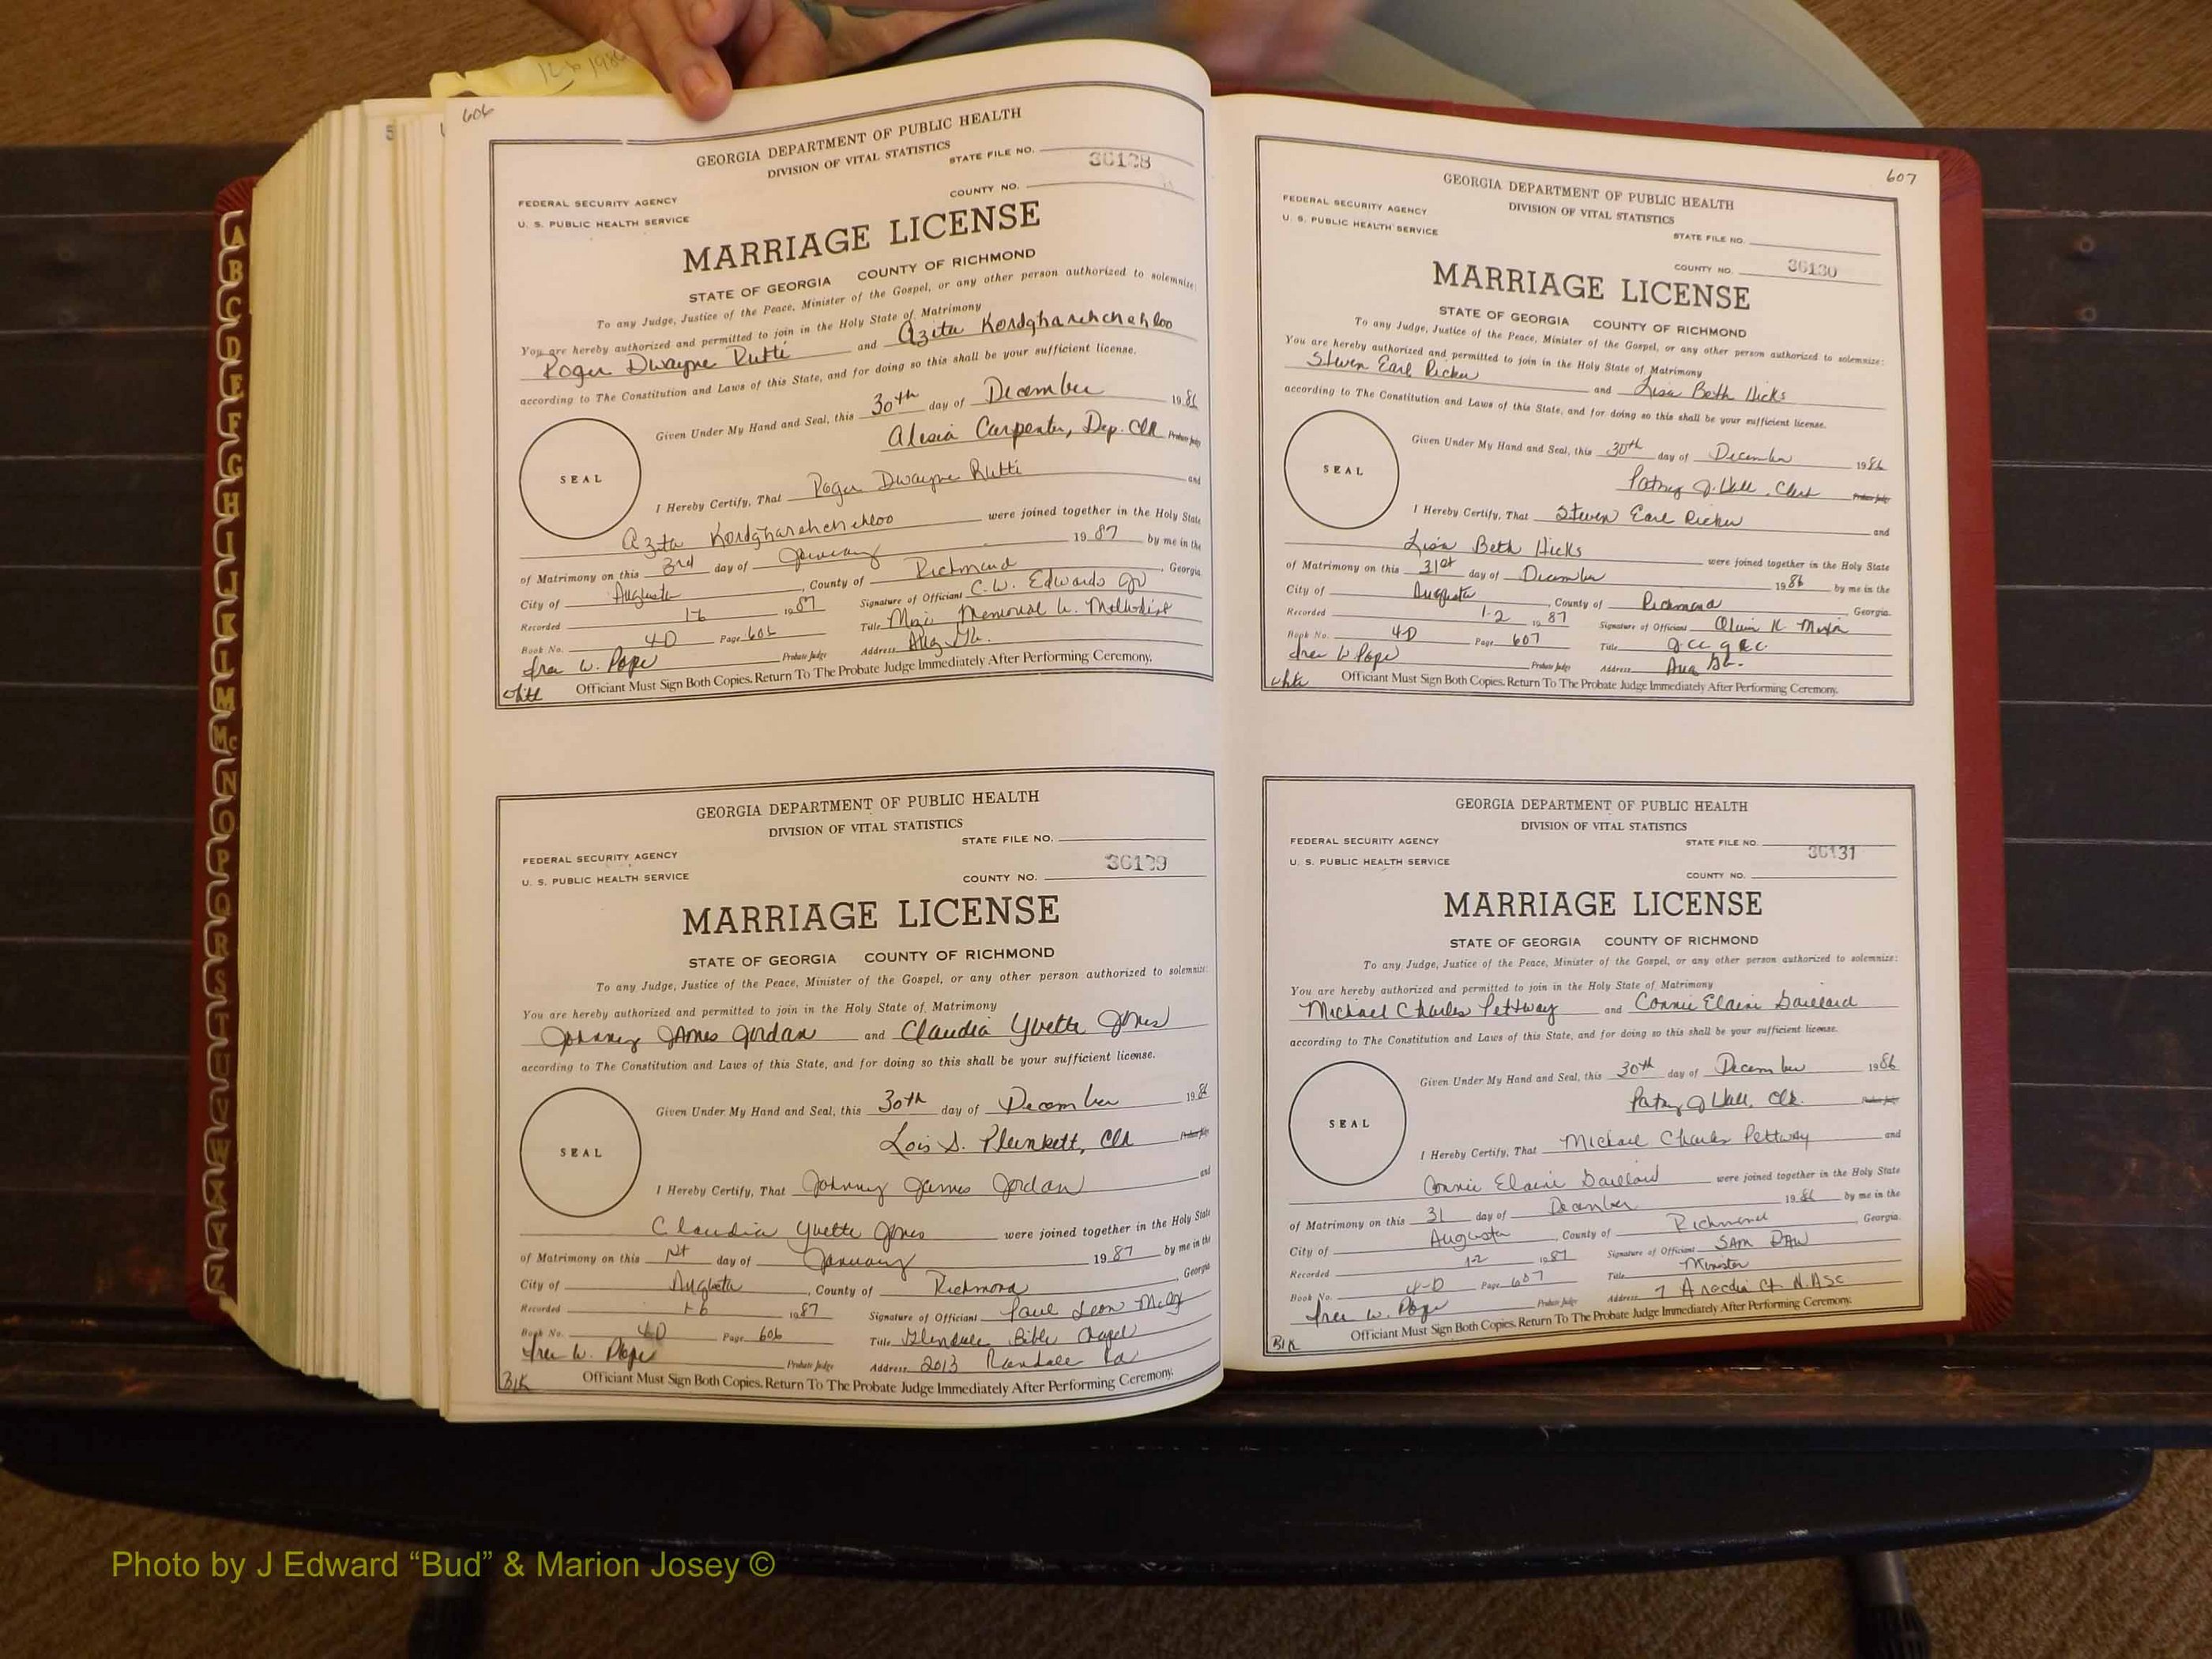 12-6 1986
606
GEORGIA DEPARTMENT OF PUBLIC HEALTH
DIVISION OF VITAL STATISTICS
STATE FILE NO. 36128
FEDERAL SECURITY AGENCY
COUNTY NO.
U. S. PUBLIC HEALTH SERVICE
MARRIAGE LICENSE
STATE OF GEORGIA COUNTY OF RICHMOND
To any Judge, Justice of the Peace, Minister of the Gospel, or any other person authorized to solemnize:
You are hereby authorized and permitted to join in the Holy State of Matrimony
Roger Dwayne Rutti and Azita Kordgharehchehloo
according to The Constitution and Laws of this State, and for doing so this shall be your sufficient license.
Given Under My Hand and Seal, this 30th day of December 1986
Alesia Carpenter, Dep. Clk Probate Judge
SEAL
I Hereby Certify, That Roger Dwayne Rutti and
Azita Kordgharehchehloo were joined together in the Holy State
of Matrimony on this 3rd day of January 1987 by me in the
City of Augusta, County of Richmond, Georgia
Recorded 1-6 1987 Signature of Officiant C.W. Edwards Jr
Book No. 4D Page 606 Title Memorial U. Methodist
Probate Judge Address Aug Ga.
Ira W. Pope
White
Officiant Must Sign Both Copies. Return To The Probate Judge Immediately After Performing Ceremony.
GEORGIA DEPARTMENT OF PUBLIC HEALTH
DIVISION OF VITAL STATISTICS
STATE FILE NO.
FEDERAL SECURITY AGENCY
36129
U. S. PUBLIC HEALTH SERVICE
COUNTY NO.
MARRIAGE LICENSE
STATE OF GEORGIA COUNTY OF RICHMOND
To any Judge, Justice of the Peace, Minister of the Gospel, or any other person authorized to solemnize:
You are hereby authorized and permitted to join in the Holy State of Matrimony
Johnny James Jordan and Claudia Yvette Jones
according to The Constitution and Laws of this State, and for doing so this shall be your sufficient license.
Given Under My Hand and Seal, this 30th day of December 1986
Lois S. Plunkett, Clk Probate Judge
SEAL
I Hereby Certify, That Johnny James Jordan and
Claudia Yvette Jones were joined together in the Holy State
of Matrimony on this 1st day of January 1987 by me in the
City of Augusta, County of Richmond, Georgia
Recorded 1-6 1987 Signature of Officiant Paul Leon
Book No. 4D Page 606 Title Glendale Bible Chapel
Ira W. Pope Probate Judge Address 2013 Rd
Blk
Officiant Must Sign Both Copies. Return To The Probate Judge Immediately After Performing Ceremony.
607
GEORGIA DEPARTMENT OF PUBLIC HEALTH
DIVISION OF VITAL STATISTICS
FEDERAL SECURITY AGENCY
STATE FILE NO.
U. S. PUBLIC HEALTH SERVICE
COUNTY NO. 36130
MARRIAGE LICENSE
STATE OF GEORGIA COUNTY OF RICHMOND
To any Judge, Justice of the Peace, Minister of the Gospel, or any other person authorized to solemnize:
You are hereby authorized and permitted to join in the Holy State of Matrimony
Steven Earl Ricker and Lisa Beth Hicks
according to The Constitution and Laws of this State, and for doing so this shall be your sufficient license.
Given Under My Hand and Seal, this 30th day of December 1986
Patsy J. Hall, Clerk Probate Judge
SEAL
I Hereby Certify, That Steven Earl Ricker and
Lisa Beth Hicks were joined together in the Holy State
of Matrimony on this 31st day of December 1986 by me in the
City of Augusta, County of Richmond Georgia
Recorded 1-2 1987 Signature of Officiant
Book No. 4D Page 607 Title
Ira W Pope Probate Judge Address Aug Ga.
White
Officiant Must Sign Both Copies. Return To The Probate Judge Immediately After Performing Ceremony.
GEORGIA DEPARTMENT OF PUBLIC HEALTH
DIVISION OF VITAL STATISTICS
FEDERAL SECURITY AGENCY
STATE FILE NO. 36131
U. S. PUBLIC HEALTH SERVICE
COUNTY NO.
MARRIAGE LICENSE
STATE OF GEORGIA COUNTY OF RICHMOND
To any Judge, Justice of the Peace, Minister of the Gospel, or any other person authorized to solemnize:
You are hereby authorized and permitted to join in the Holy State of Matrimony
Michael Charles Pettway and Connie Elaine Gaillard
according to The Constitution and Laws of this State, and for doing so this shall be your sufficient license.
Given Under My Hand and Seal, this 30th day of December 1986
Patsy J Hall, Clk. Probate Judge
SEAL
I Hereby Certify, That Michael Charles Pettway and
Connie Elaine Gaillard were joined together in the Holy State
of Matrimony on this 31 day of December 1986 by me in the
City of Augusta, County of Richmond, Georgia
Recorded 1-2 1987 Signature of Officiant SAM DAW
Book No. 4-D Page 607 Title Minister
Ira W. Pope Probate Judge Address 7 Ct N. ASC
Blk
Officiant Must Sign Both Copies. Return To The Probate Judge Immediately After Performing Ceremony.
A
B
C
D
E
F
G
H
I
J
K
L
M
Mc
N
O
P
Q
R
S
T
U
V
W
X
Y
Z
Photo by J Edward “Bud” & Marion Josey ©